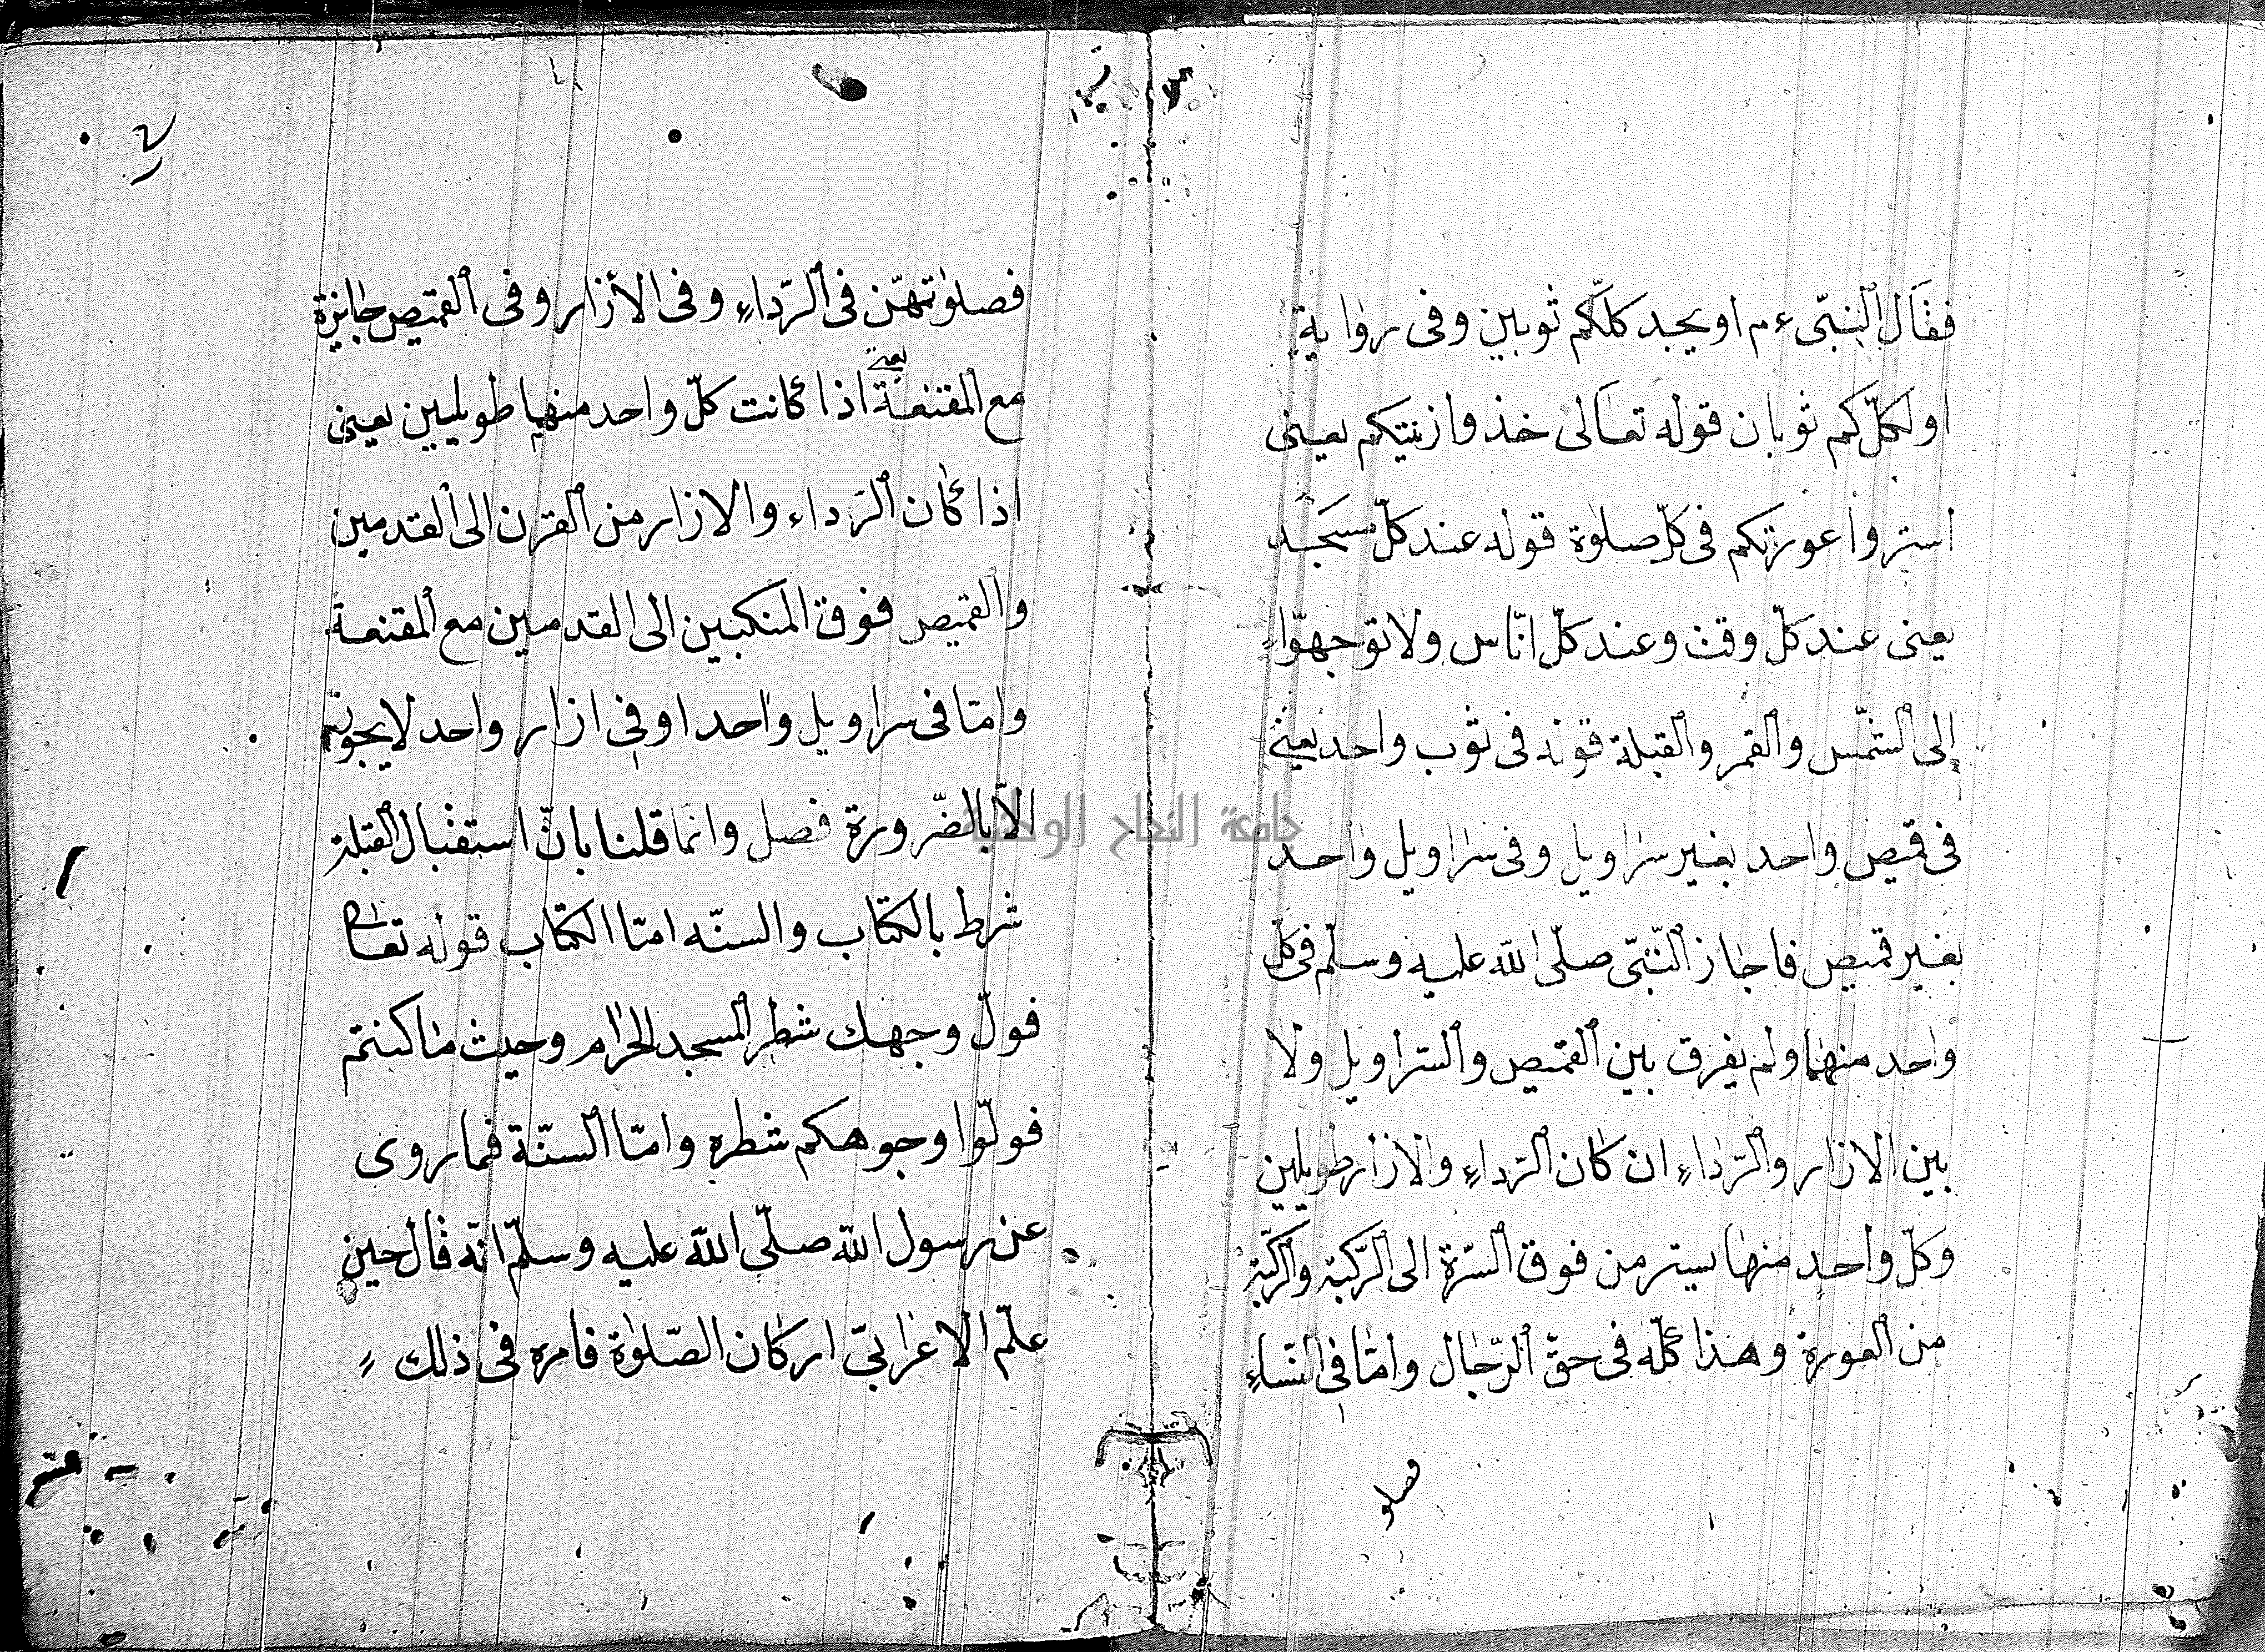 فقال النبىّ ءم او يجد كلّكم ثوبين وفى رواية
اولكلّكم ثوبان قوله تعالى خذوا زينتكم يعنى
استروا عورتكم فى كلّ صلوة قوله عند كلّ مسجد
يعنى عند كلّ وقت وعند كلّ انّاس ولا توجهوّا
إلى الشمّس والقمر والقبلة قوله فى ثوب واحد يعنى
فى قميص واحد بغير سراويل وفى سراويل واحد
بغير قميص فاجاز النّبىّ صلّى الله عليه وسلّم فى كلّ
واحد منهما ولم يفرق بين القميص والسّراويل ولا
بين الازار والرّداءِ ان كان الرّداءِ والازار طويلين
وكلّ واحد منها يستر من فوق السّرة الى الرّكبة والرّكبة
من العورة وهذا كلّه فى حقّ الرّجال وامّا فى النّساءِ
فصلو
فصلوٰتهنّ فى الرّداءِ وفى الأزار وفى القميص جايزة
يعنى
مع المقنعة اذا كانت كلّ واحد منهما طويليين يعنى
اذا كان الرّداء والازار من القرن الى القدمين
والقميص فوق المنكبين الى القدمين مع المقنعة
وامّا فى سراويل واحد اوفى ازار واحد لا يجوز
الّا بالضّرورة فصل وانّما قلنا بانّ استقبال القبلة
شرط بالكتاب والسنّه امّا الكتاب قوله تعالى
فولّ وجهك شطر المسجد الحرام وحيث ما كنتم
فولّوا وجوهكم شطره وامّا السنّة فما روى
عن رسول الله صلّى الله عليه وسلّم انّه قال حين
علّم الاعرابىّ اركان الصّلوٰة فامره فى ذلك
جامعة النجاح الوطنية